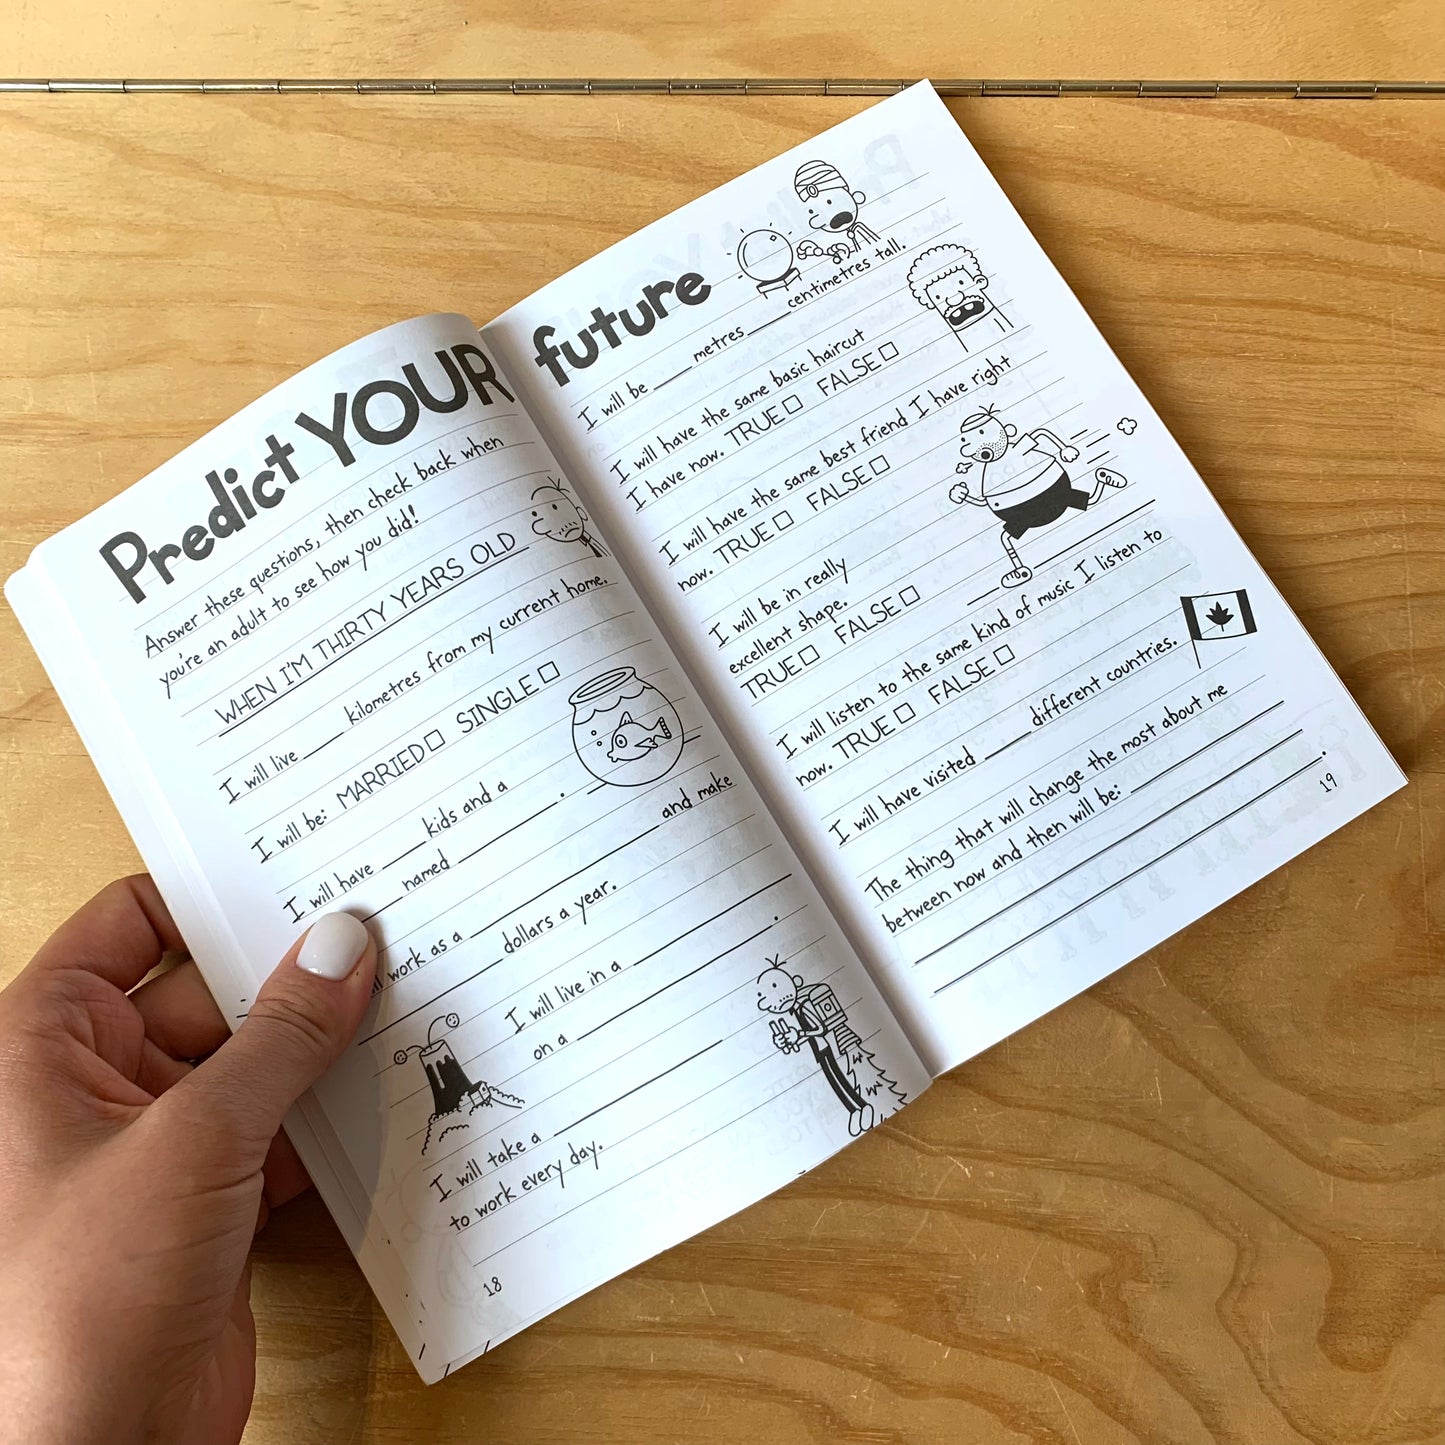 Predict YOUR future
Answer these questions, then check back when
you're an adult to see how you did!
WHEN I'M THIRTY YEARS OLD
I will live ____ kilometres from my current home.
I will be: MARRIED□ SINGLE□
I will have ____ kids and a
____ named ____.
work as a ____ and make
____ dollars a year.
I will live in a ____
on a ____.
I will take a ____
to work every day.
18
I will be ____ metres ____ centimetres tall.
I will have the same basic haircut
I have now. TRUE□ FALSE□
I will have the same best friend I have right
now. TRUE□ FALSE□
I will be in really
excellent shape.
TRUE□ FALSE□
I will listen to the same kind of music I listen to
now. TRUE□ FALSE□
I will have visited ____ different countries.
The thing that will change the most about me
between now and then will be: ____
____.
19